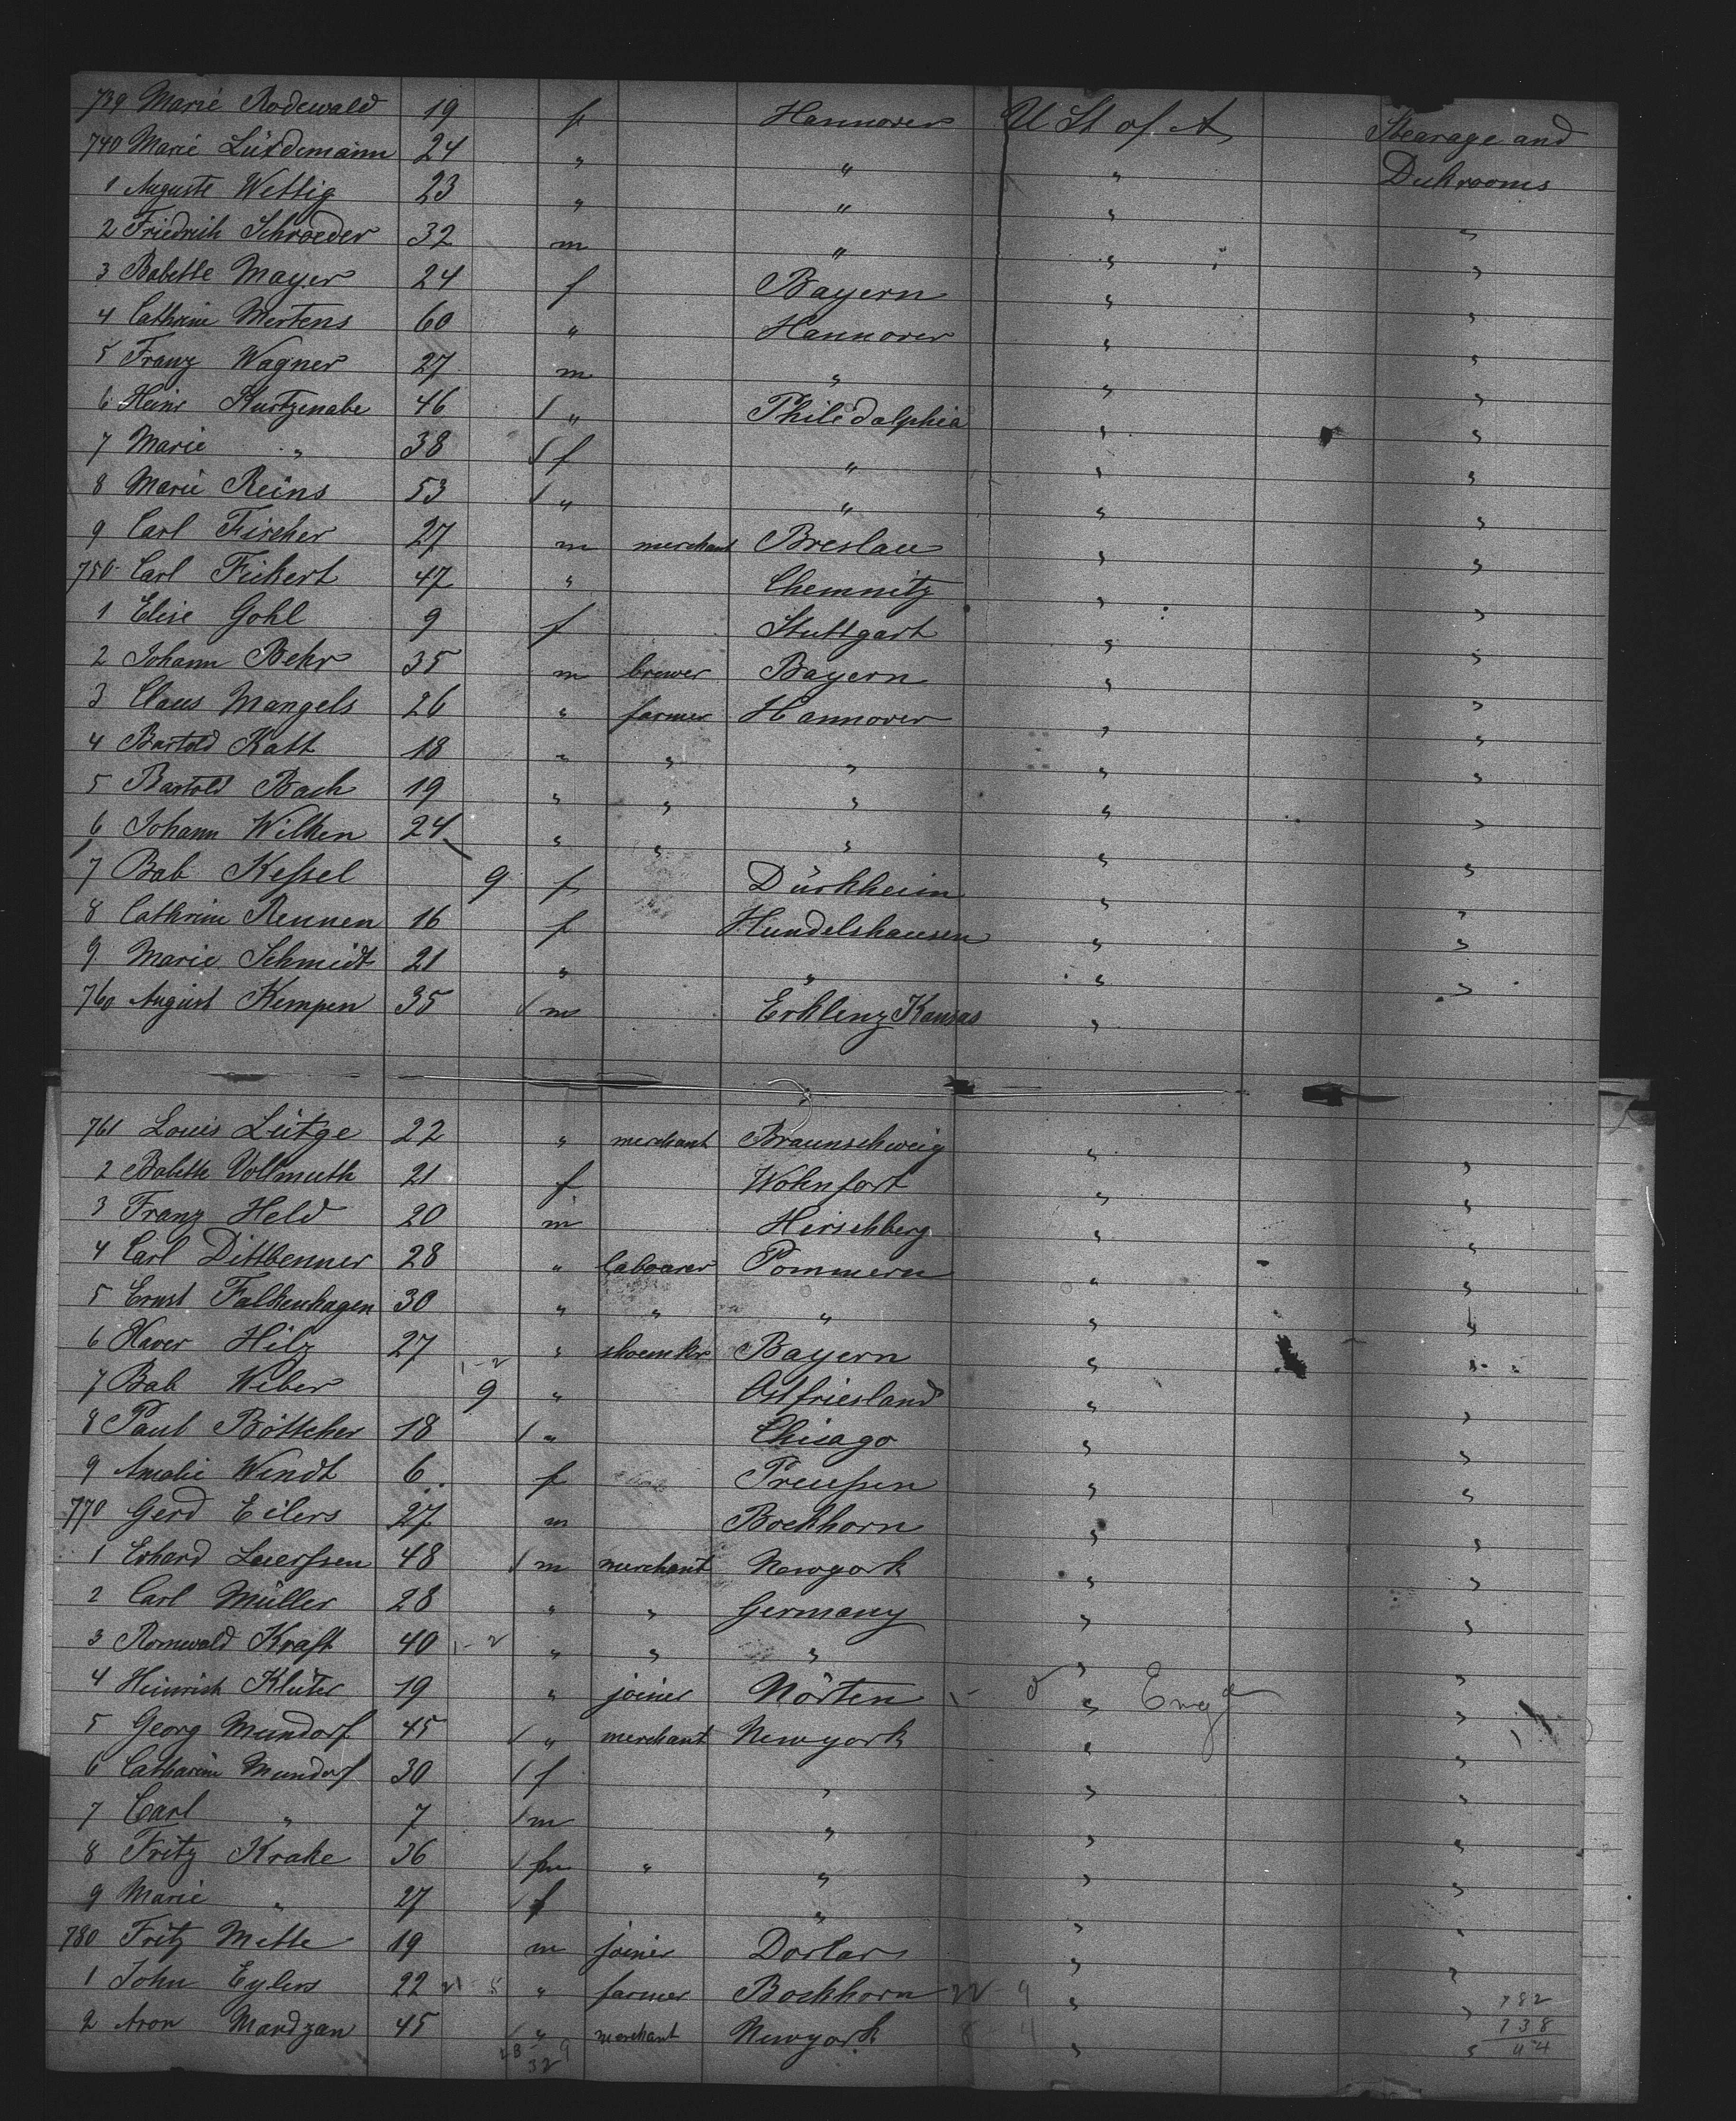 739 Marie Rodewald 19 f Hannover U St of A Stearage and
740 Marie Lüdemann 24 " " " Deckrooms
1 Auguste Wettig 23 " " "
2 Friedrich Schroeder 32 m " " "
3 Babette Mayer 24 f Bayern " "
4 Cathrine Mertens 60 " Hannover " "
5 Franz Wagner 27 m " " "
6 Heinr Kurtzenabe 46 / " Philedalphia " "
7 Marie " 38 / f " " "
8 Marie Reins 53 / " " " "
9 Carl Fircher 27 m merchant Breslau " "
750 Carl Fickert 47 " Chemnitz " "
1 Elise Gohl 9 f Stuttgart " "
2 Johann Behr 35 m brewer Bayern " "
3 Claus Mangels 26 " farmer Hannover " "
4 Bartold Katt 18 " " " " "
5 Bartold Bach 19 " " " " "
6 Johann Wilken 24 " " " " "
7 Bab Keſsel 9 f Dürkheim " "
8 Cathrine Rennen 16 f Hundelshausen " "
9 Marie Schmidt 21 " " " "
760 August Kempen 35 / m Erklenz Kansas " "
761 Louis Lütge 22 " merchant Braunschweig " "
2 Babette Vollmuth 21 f Wohnfort " "
3 Franz Held 20 m Hirschberg " "
4 Carl Dittbenner 28 " labourer Pommern " "
5 Ernst Falkenhagen 30 " " " " "
6 Xaver Hilz 27 " shoemkr Bayern " "
7 Bab Weber 9 " Ostfriesland " "
8 Paul Böttcher 18 / " Chicago " "
9 Amalie Wendt 6 f Preuſsen " "
770 Gerd Eilers 27 m Bockhorn " "
1 Erhard 48 / m merchant Newyork " "
2 Carl Müller 28 " " Germany " "
3 Romwald Kraft 40 1-2 " " " " "
4 Heinrich Klüter 19 " joiner Nörten " Engd "
5 Georg Mundorf 45 / " merchant Newyork " "
6 Catharine Mundorf 30 / f " " "
7 Carl " 7 / m " " "
8 Fritz Krake 36 / m " " " "
9 Marie " 27 / f " " "
780 Fritz Mette 19 m joiner Dorlar " "
1 John Eylers 22 " farmer Bockhorn 22 9 " " 782
2 Aron Mandzan 45 / " merchant Newyork 8 4 " " 738
32 9 44